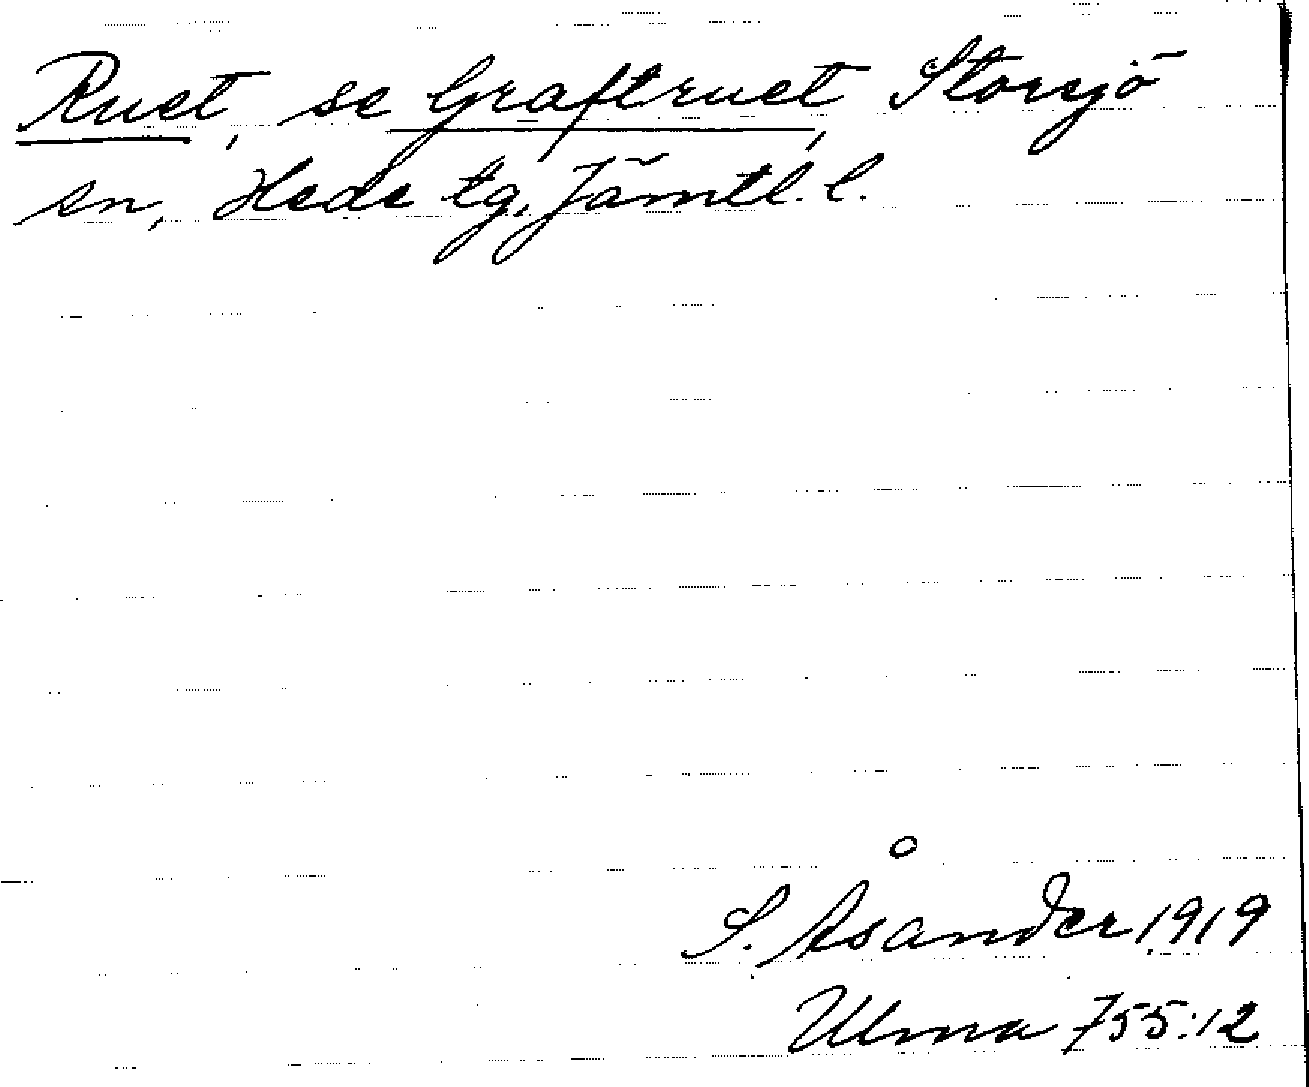 Ruet, se Graftruet, Storsjö
sn, Hede tg, Jämtl. l.
S. Åsander 1919
Ulma 755:12